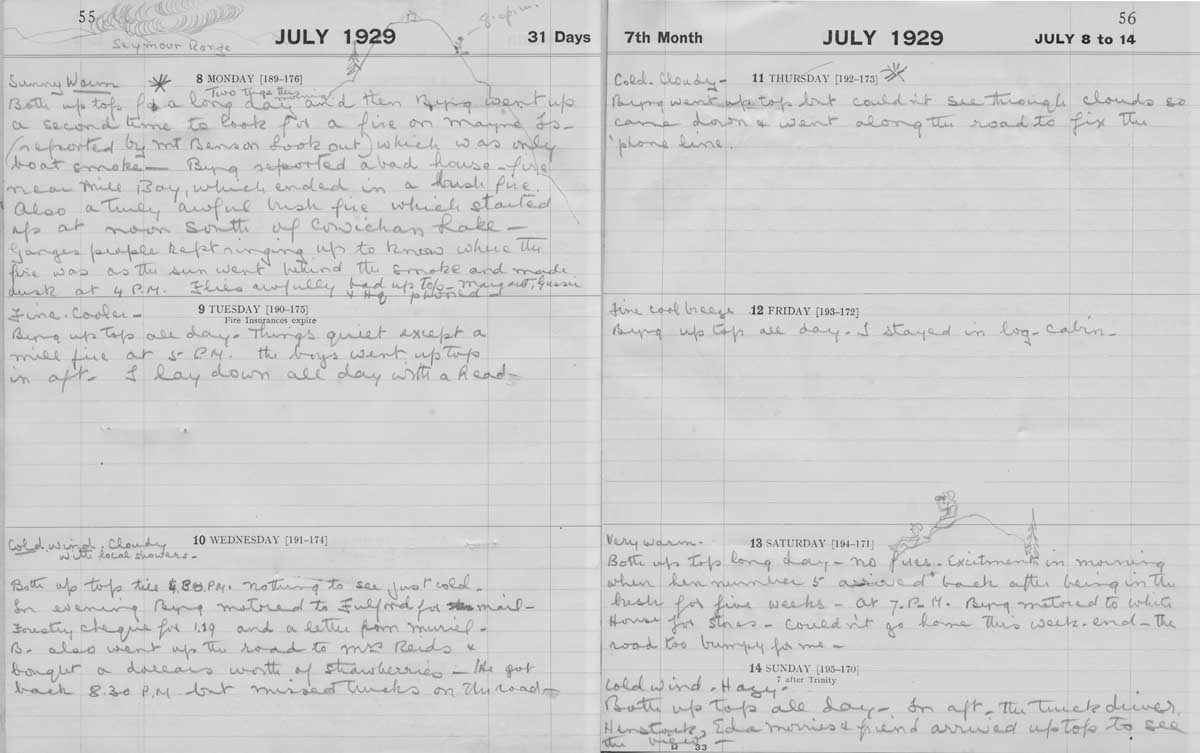 55
Seymour Range
8. p.m.
JULY 1929
31 Days
Sunny Warm
8 MONDAY [189-176]
Two trips this
morning
Both up top for a long day and then Byng went up
a second time to look for a fire on Mayne Is-
(reported by Mt Benson Look out) which was only
boat smoke - Byng reported a bad house-fire
near Mill Bay, which ended in a bush fire.
Also a truly awful bush fire which started
up at noon South of Cowichan Lake -
Ganges people kept ringing up to know where the
fire was as the sun went behind the smoke and made
dusk at 4 P.M. Flies awfully bad up top - Margaret, Gussie
& HQ phoned -
Fine. Cooler -
9 TUESDAY [190-175]
Fire Insurances expire
Byng up top all day. Things quiet except a
mill fire at 5 P.M. the boys went up top
in aft. I lay down all day with a head -
Cold. wind. Cloudy
with local showers -
10 WEDNESDAY [191-174]
Both up top till 4.30 P.M. nothing to see just cold -
In evening Byng motored to Fulford for mail -
Forestry cheque for 119 and a letter from Muriel -
B. also went up the road to Mrs Reids &
bought a dollars worth of strawberries - He got
back 8.30 P.M. but missed trucks on the road -
7th Month
JULY 1929
56
JULY 8 to 14
Cold. Cloudy -
11 THURSDAY [192-173]
Byng went up top but couldn't see through clouds so
came down & went along the road to fix the
'phone line.
Fine cool breeze
12 FRIDAY [193-172]
Byng up top all day. I stayed in log-cabin -
Very warm.
13 SATURDAY [194-171]
Both up top long day - no fires. Excitment in morning
when hen number 5 arrived back after being in the
bush for five weeks - at 7. P.M. Byng motored to White
House for stores - Couldn't go home this week-end - the
road too bumpy for me -
14 SUNDAY [195-170]
7 after Trinity
Cold wind - Hazy -
Both up top all day - In aft - the truck driver
Henstock, Eda Morris & friend arrived up top to see
the view -
D 33